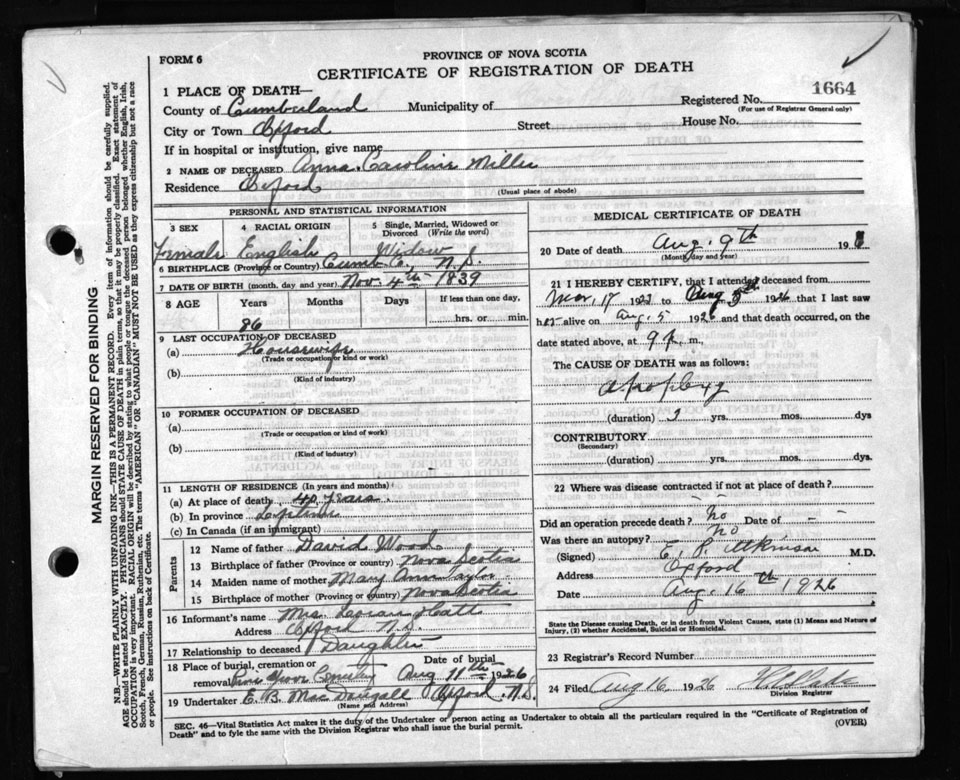 FORM 6
PROVINCE OF NOVA SCOTIA
CERTIFICATE OF REGISTRATION OF DEATH
1664
1 PLACE OF DEATH—
County of Cumberland Municipality of Registered No.
(For use of Registrar General only)
City or Town Oxford Street House No.
If in hospital or institution, give name
2 NAME OF DECEASED Anna Caroline Miller
Residence Oxford
(Usual place of abode)
PERSONAL AND STATISTICAL INFORMATION
3 SEX 4 RACIAL ORIGIN 5 Single, Married, Widowed or Divorced (Write the word)
Female English Widow
6 BIRTHPLACE (Province or Country) Cumb. Co., N.S.
7 DATE OF BIRTH (month, day and year) Nov. 4th 1839
8 AGE Years Months Days If less than one day,
86 hrs. or min.
9 LAST OCCUPATION OF DECEASED
(a) Housewife
(Trade or occupation or kind or work)
(b)
(Kind of industry)
10 FORMER OCCUPATION OF DECEASED
(a)
(Trade or occupation or kind of work)
(b)
(Kind of industry)
11 LENGTH OF RESIDENCE (In years and months)
(a) At place of death 40 years
(b) In province Lifetime
(c) In Canada (if an immigrant)
Parents
12 Name of father David Wood
13 Birthplace of father (Province or country) Nova Scotia
14 Maiden name of mother Mary Ann Taylor
15 Birthplace of mother (Province or country) Nova Scotia
16 Informant's name Mrs.
Address Oxford N.S.
17 Relationship to deceased Daughter
18 Place of burial, cremation or Date of burial
removal Pine Grove Cemetery Aug 11th 1926
19 Undertaker E. B. MacDougall Oxford N.S.
(Name and Address)
MEDICAL CERTIFICATE OF DEATH
20 Date of death Aug. 9th 1926
(Month, day and year)
21 I HEREBY CERTIFY, that I attended deceased from
Mar. 17 1922 to Aug 1926 that I last saw
her alive on Aug. 5 1926 and that death occurred, on the
date stated above, at 9 P. m.
The CAUSE OF DEATH was as follows:
Apoplexy
(duration) yrs. mos. dys
CONTRIBUTORY
(Secondary)
(duration) yrs. mos. dys.
22 Where was disease contracted if not at place of death?
Did an operation precede death? No Date of – –
Was there an autopsy? No
(Signed) E. P. Atkinson M.D.
Address Oxford
Date Aug. 16th 1926
State the Disease causing Death, or in death from Violent Causes, state (1) Means and Nature of
Injury, (2) whether Accidental, Suicidal or Homicidal.
23 Registrar's Record Number
24 Filed Aug 16 1926
Division Registrar
SEC. 46—Vital Statistics Act makes it the duty of the Undertaker or person acting as Undertaker to obtain all the particulars required in the "Certificate of Registration of
Death" and to fyle the same with the Division Registrar who shall issue the burial permit. (OVER)
MARGIN RESERVED FOR BINDING
N.B.—WRITE PLAINLY WITH UNFADING INK—THIS IS A PERMANENT RECORD. Every item of information should be carefully supplied.
AGE should be stated EXACTLY. PHYSICIANS should STATE CAUSE OF DEATH in plain terms, so that it may be properly classified. Exact statement of
OCCUPATION is very important. RACIAL ORIGIN will be described by stating to what people or tongue the deceased person belonged whether English, Irish,
Scotch, French, German, Russian, Ruthenian, etc. The terms "AMERICAN" OR "CANADIAN" MUST NOT BE USED as they express citizenship but not a race
or people. See instructions on back of Certificate.